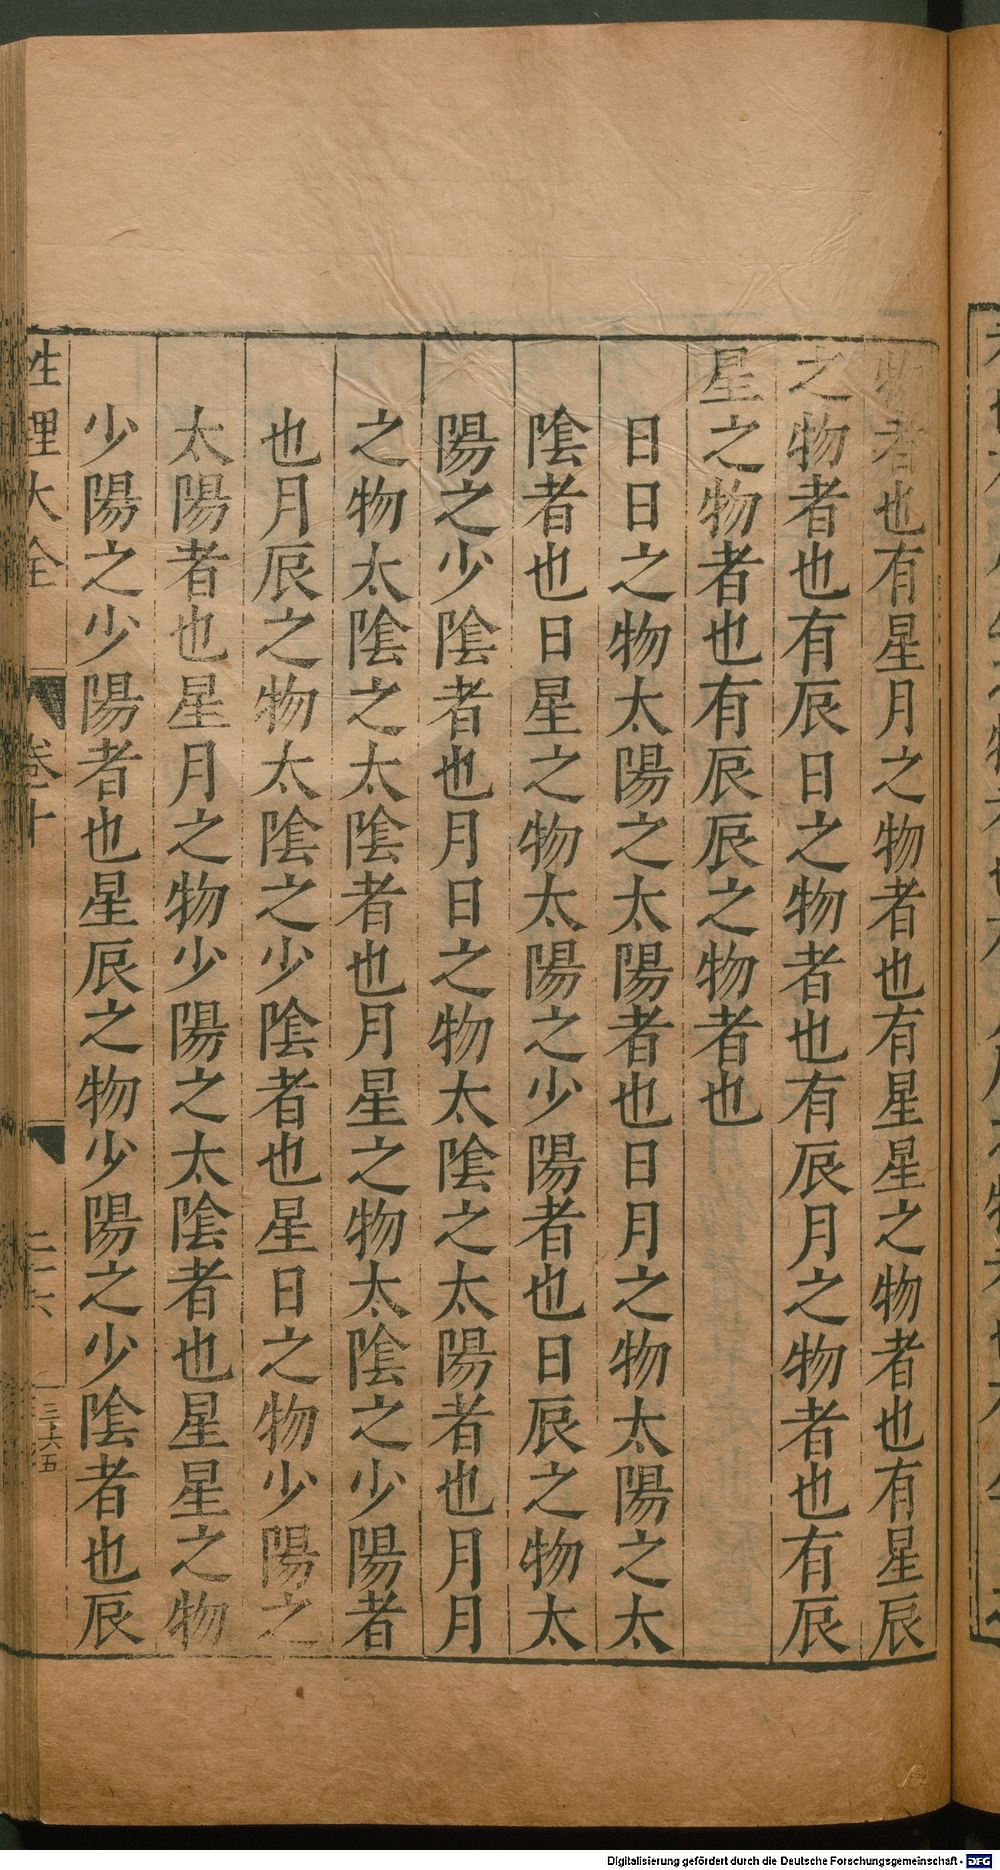 物者也有星月之物者也有星星之物者也有星辰
之物者也有辰日之物者也有辰月之物者也有辰
星之物者也有辰辰之物者也
日日之物太陽之太陽者也日月之物太陽之太
陰者也日星之物太陽之少陽者也日辰之物太
陽之少陰者也月日之物太陰之太陽者也月月
之物太陰之太陰者也月星之物太陰之少陽者
也月辰之物太陰之少陰者也星日之物少陽之
太陽者也星月之物少陽之太陰者也星星之物
少陽之少陽者也星辰之物少陽之少陰者也辰
性理大全 卷十 二十六 三六五
Digitalisierung gefördert durch die Deutsche Forschungsgemeinschaft - DFG